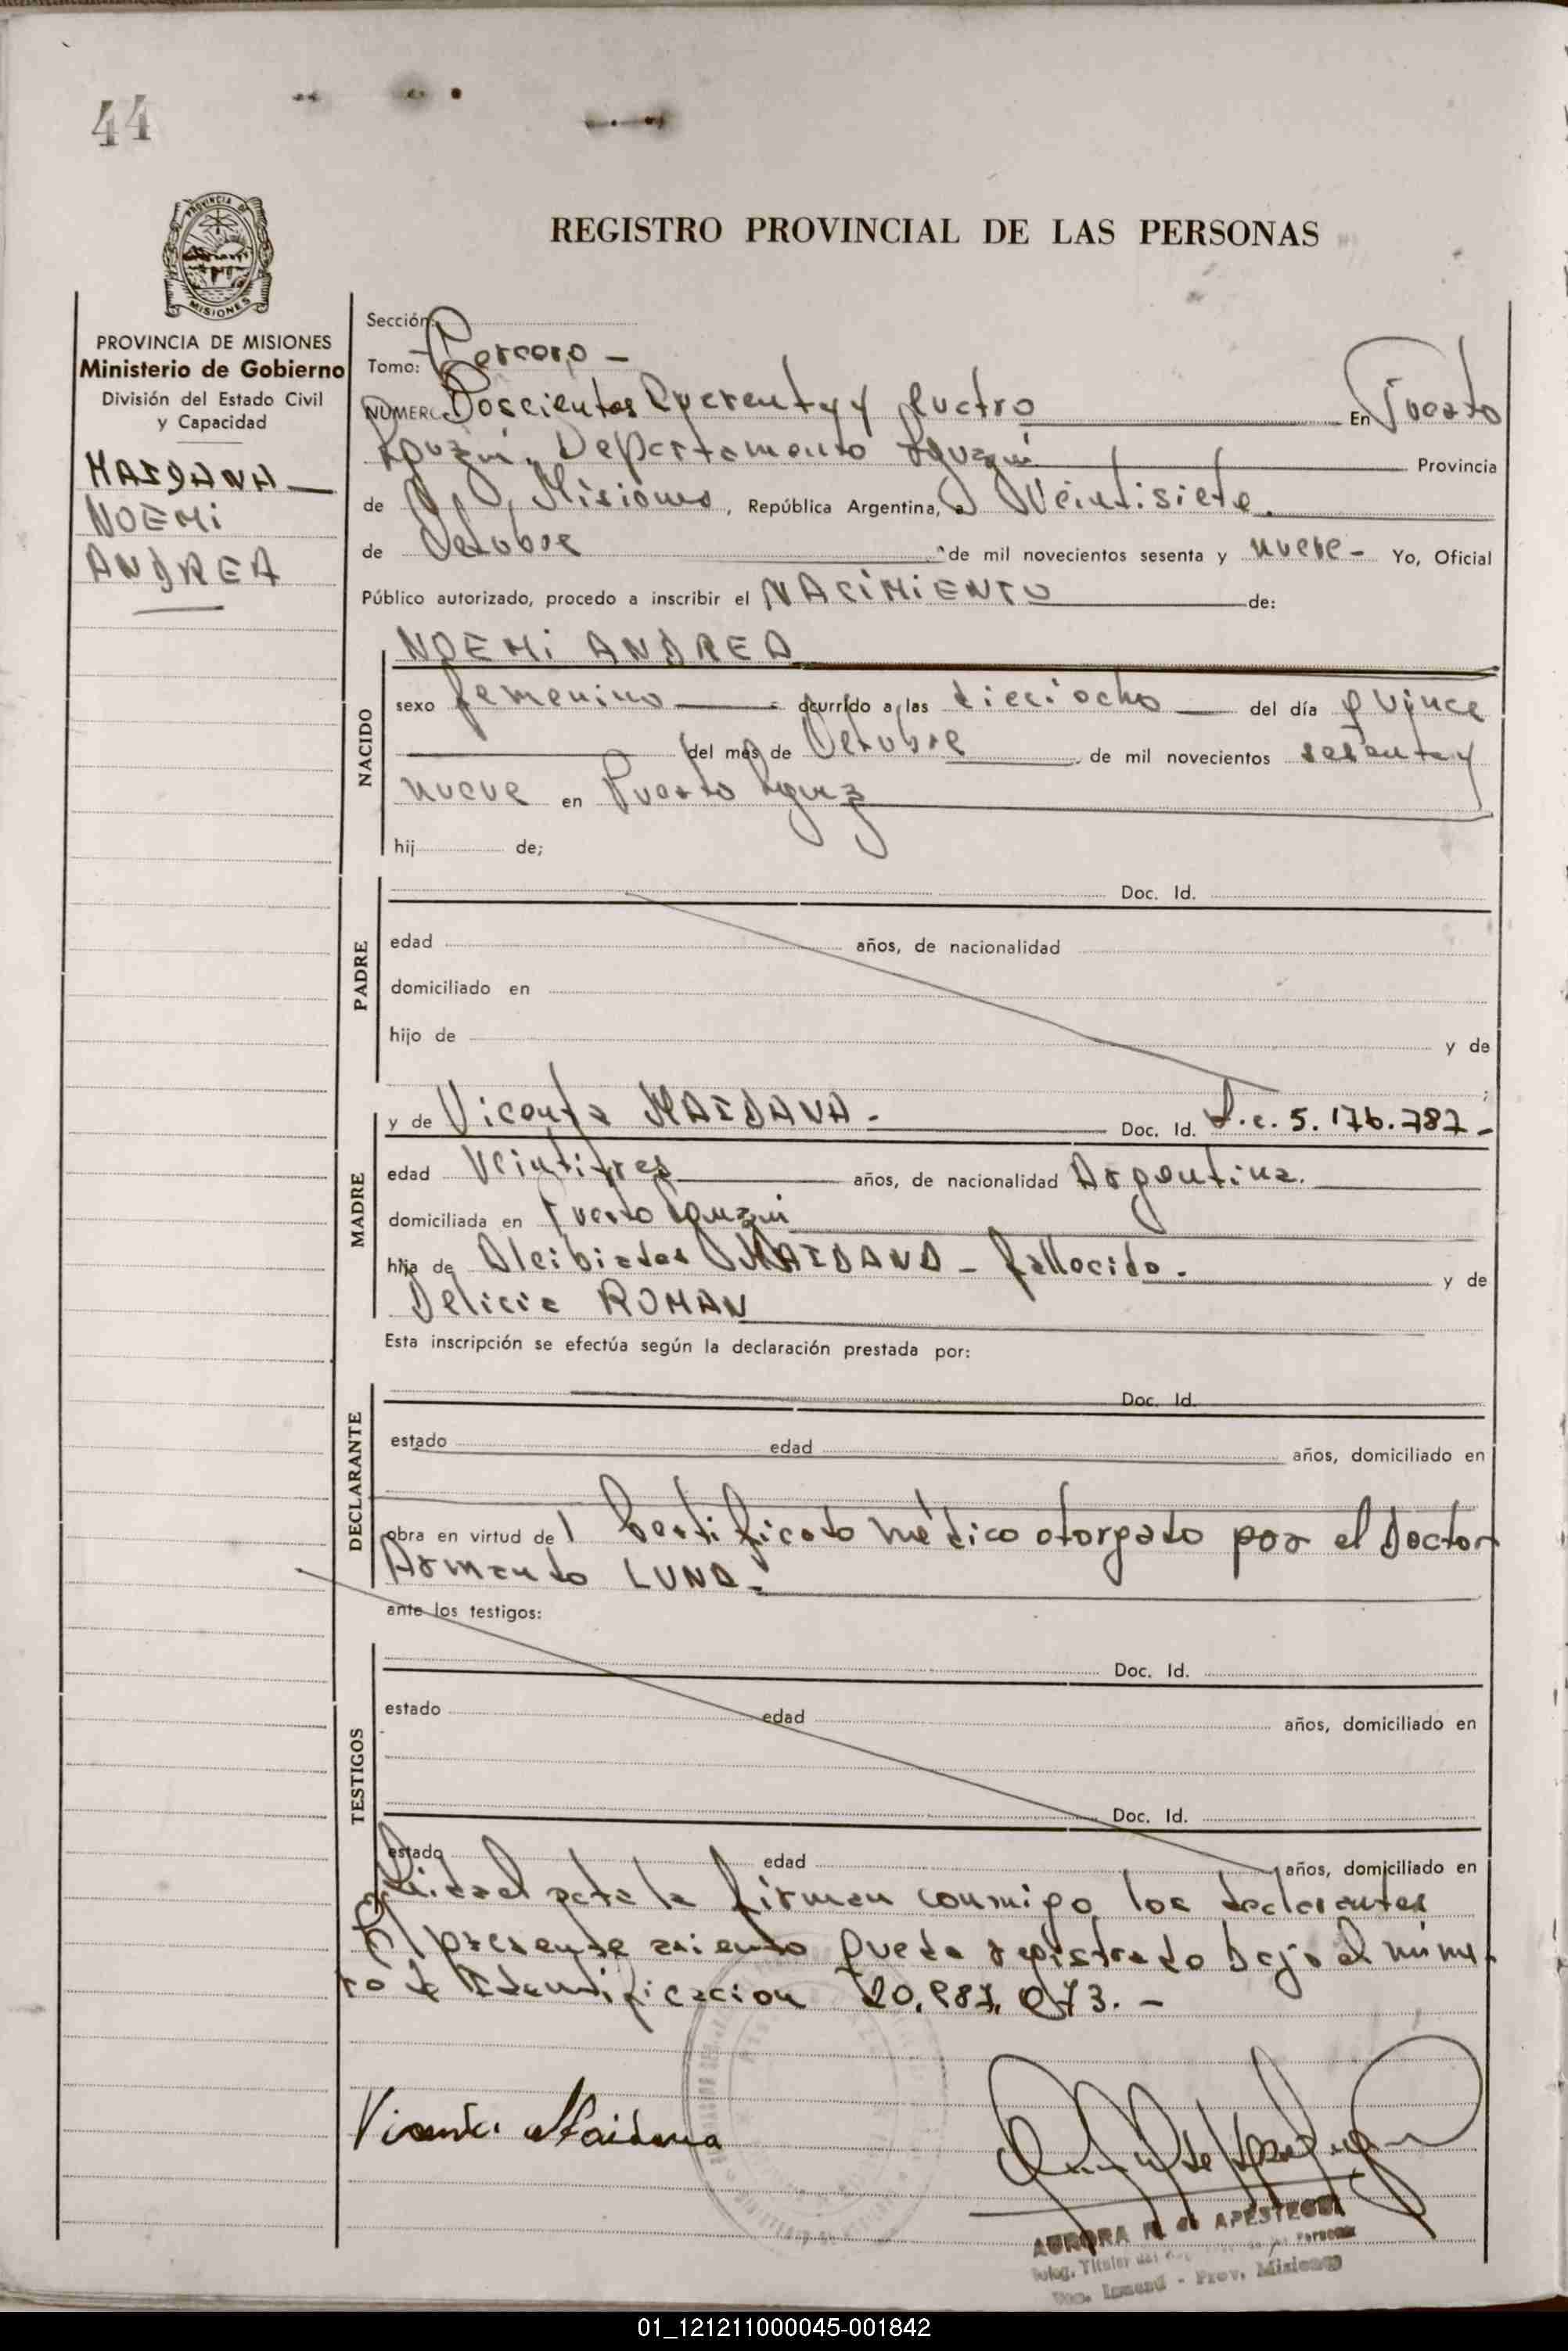 44
PROVINCIA DE
MISIONES
REGISTRO PROVINCIAL DE LAS PERSONAS
PROVINCIA DE MISIONES
Ministerio de Gobierno
División del Estado Civil
y Capacidad
MAIDANA
NOEMI
ANDREA
Sección:
Tomo: Tercero -
NUMERO Doscientos Cuarenta y Cuatro En Puerto
Iguazú, Departamento Iguazú Provincia
de Misiones, República Argentina, a Veintisiete.
de Octubre de mil novecientos sesenta y nueve - Yo, Oficial
Público autorizado, procedo a inscribir el NACIMIENTO de:
NACIDO
NOEMI ANDREA
sexo femenino ocurrido a las dieciocho del día quince
del mes de Octubre de mil novecientos sesenta y
nueve en Puerto Iguaz
hij de;
PADRE
Doc. Id.
edad años, de nacionalidad
domiciliado en
hijo de y de
;
MADRE
y de Vicenta MAIDANA - Doc. Id. L.c. 5.176.787 -
edad Veintitres años, de nacionalidad Argentina.
domiciliada en Puerto Iguazú
hija de Alcibiades MAIDANA - fallecido. y de
Delicia ROMAN
Esta inscripción se efectúa según la declaración prestada por:
DECLARANTE
Doc. Id.
estado edad años, domiciliado en
obra en virtud del Certificado médico otorgado por el Doctor
Armando LUNA -
ante los testigos:
TESTIGOS
Doc. Id.
estado edad años, domiciliado en
Doc. Id.
estado edad años, domiciliado en
acta la firman conmigo los declarantes
El presente asiento queda registrado bajo el núme-
ro de Identificacion 20.987.073. -
Vicenta Maidana
AURORA de APESTEGUI
Titular
Iguazú - Prov. Misiones
01_121211000045-001842